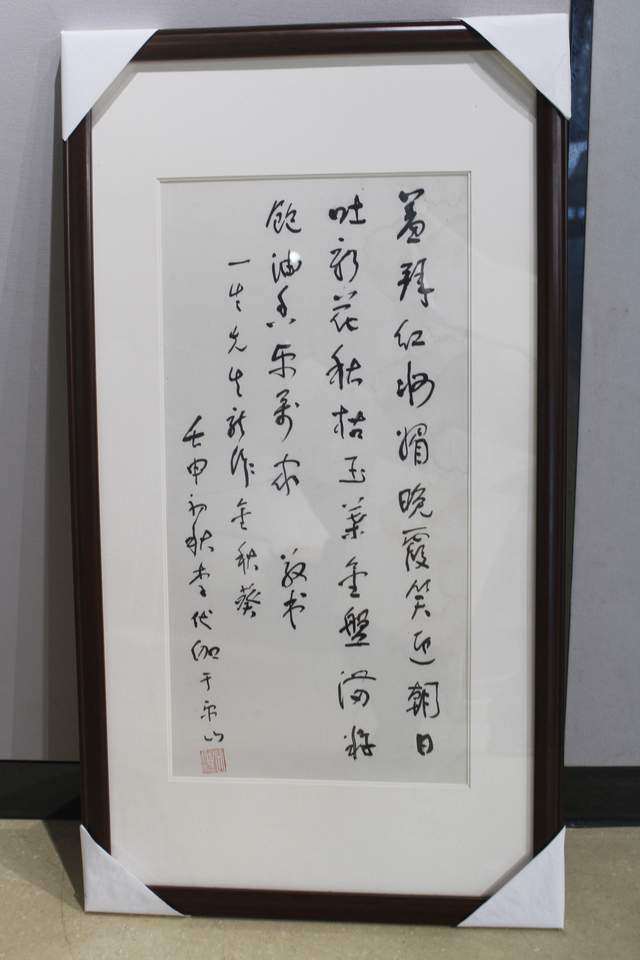 羞拜红妆媚晚霞笑迎朝日
吐新花秋枯玉叶金盘满籽
饱油香乐万家 敬书
一生先生新作金秋葵
壬申初秋李代伽于乐山